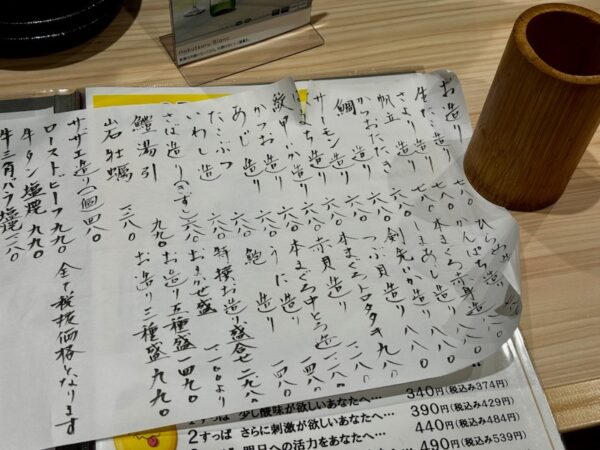 Hakutsuru Blanc
お造り
生だこ造り 七八〇
さより造り 七八〇
帆立造り 六八〇
かつおたたき 六八〇
鯛造り 六八〇
サーモン造り 六八〇
はまち造り 六八〇
紋甲いか造り 六八〇
かつお造り 六八〇
あじ造り 六八〇
たこぶつ 六八〇
いわし造り 六八〇
さば造り(きずし) 六八〇
鱧湯引 九八〇
岩牡蠣
サザエ造り(一個)一四八〇
ローストビーフ 九九〇
牛タン塩焼 九九〇
牛三角バラ塩焼
ひらめ造り
かんぱち造り 八八〇
本まぐろ赤身造り
しまあじ造り 八八〇
剣先いか造り 八八〇
つぶ貝造り 九八〇
本まぐろトロタタキ
赤貝造り
本まぐろ中とろ造り
うに造り 一四八〇
鮑造り 一四八〇
特撰お造り盛合せ 二九八〇
おまかせ盛
お造り五種盛 一四九〇
お造り三種盛 九九〇
全て税抜価格となります
340円(税込み374円)
2すっぱ 少し酸味が欲しいあなたへ… 390円(税込み429円)
2すっぱ さらに刺激が欲しいあなたへ… 440円(税込み484円)
明日への活力をあなたへ… 490円(税込み539円)